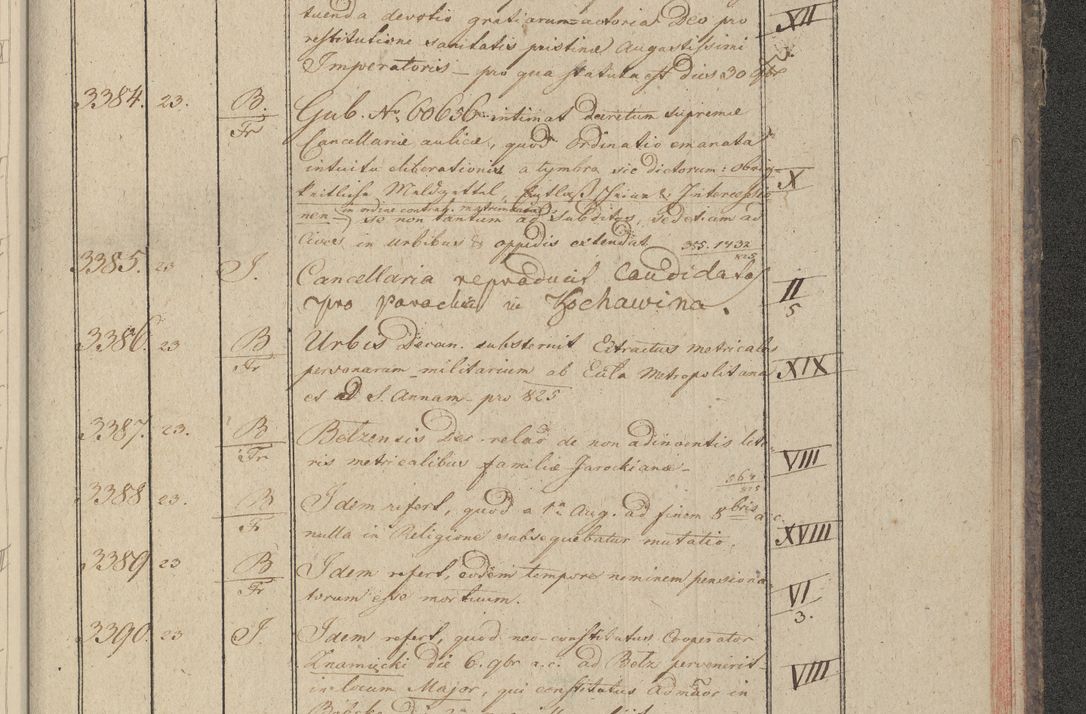 tuenda devotio gratiarum-actoria Deo pro XII
restitutione sanitatis pristinae Augustissimi
Imperatoris – pro qua statuta est dies 30 9br
3384. 23. B. Gub. No. 60656 intimat decretum supremae
Fr
Cancellariae aulicae, quod Ordinatio emanata
intuitu eliberationis a tymbra sic dictorum: X
in ordine contrah. matrimonia
nen – se non tantum ad subditos, sed etiam ad
Cives in urbibus & oppidis extendat 355. 1432
825
3385. 23 J. Cancellaria reproducit Candidatos
pro Parochia in Kochawina. II
5
3386. 23 B Urbis Decan. substernit Extractus metricales
Fr
personarum militarium ab Eccla Metropolitana XIX
et ad S. Annam – pro 825
3387. 23. B Belzensis Dec. relao de non adinventis lit
Fr
ris metricalibus familiae Jarockianae – VIII
3388 23. B Idem refert, quod a 1a Aug. ad finem 8bris a. c.
Fr
nulla in Religione subsequebatur mutatio. XVIII
3389 23 B Idem refert, eodem tempore neminem pensiona
Fr
torum esse mortuum. VI
3.
3390. 23 J. Idem refert, quod neo-constitutus Cooperator
Znamiecki die 6. 9br a. c. ad Belz pervenerit – VIII
in locum Major, qui constitutus in